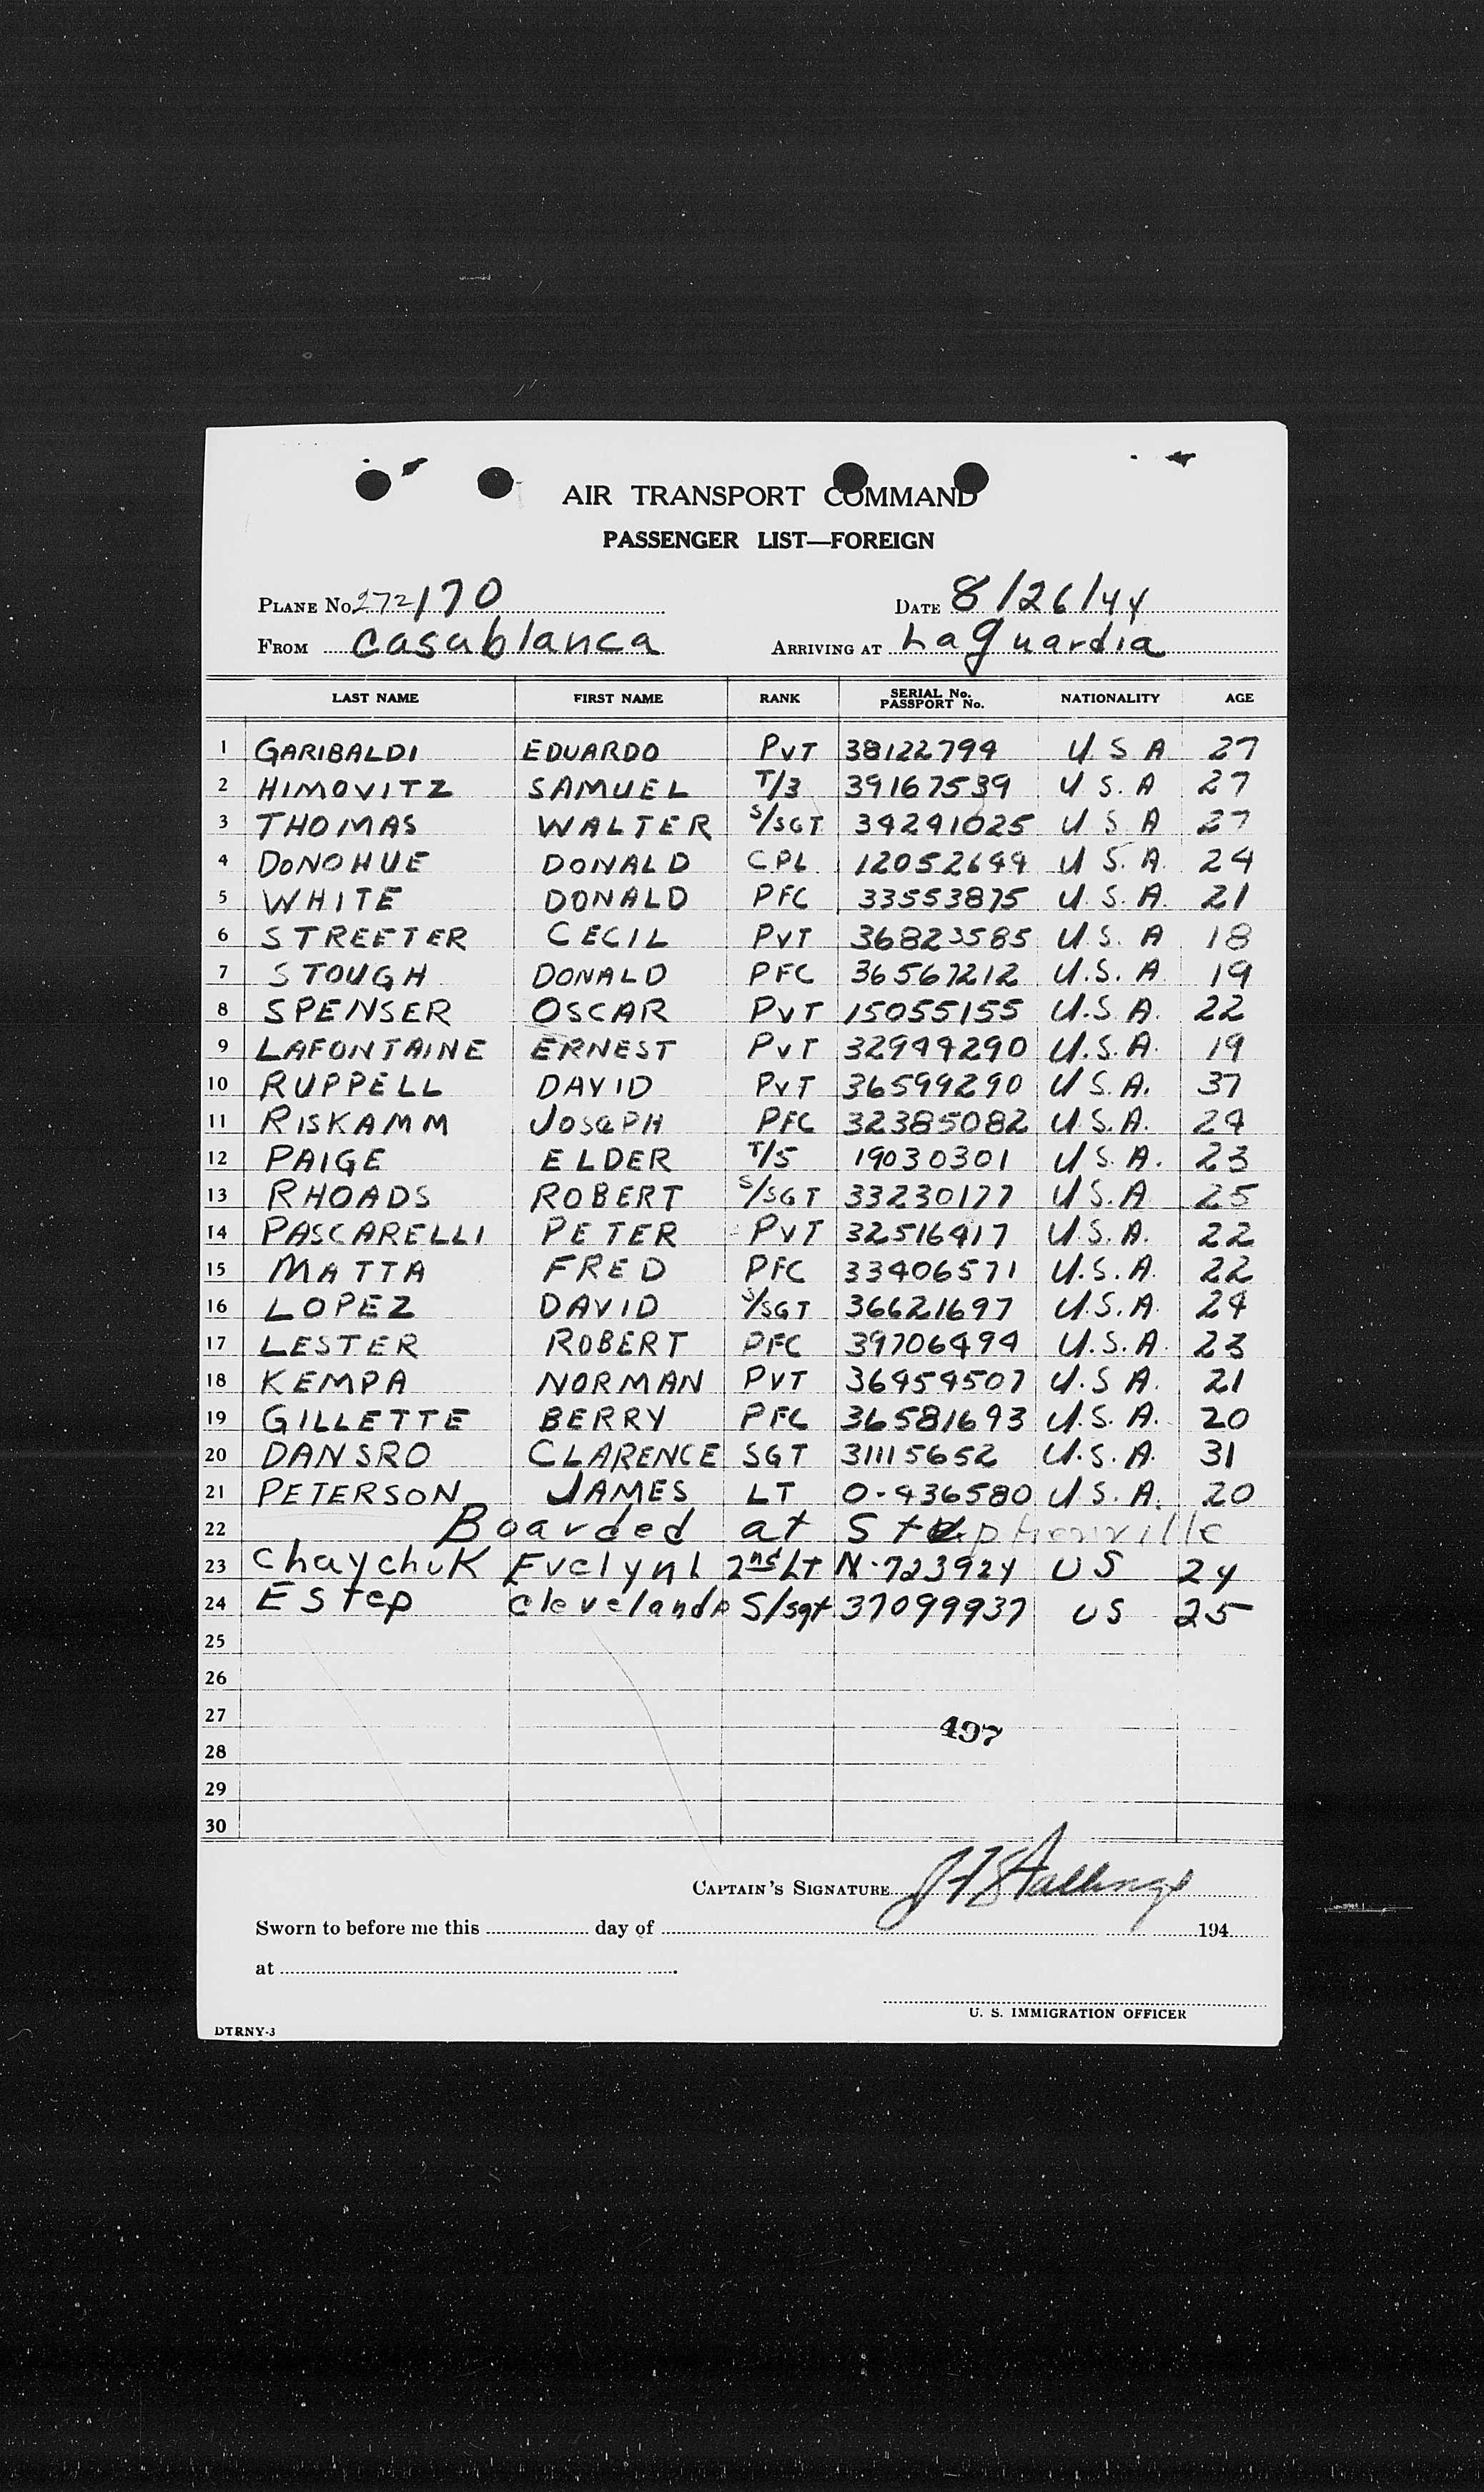 AIR TRANSPORT COMMAND
PASSENGER LIST—FOREIGN
PLANE No. 272170 DATE 8/26/44
FROM Casablanca ARRIVING AT LaGuardia
LAST NAME FIRST NAME RANK SERIAL No. PASSPORT No. NATIONALITY AGE
1 GARIBALDI EDUARDO PVT 38122794 U.S.A 27
2 HIMOVITZ SAMUEL T/3 39167539 U.S.A 27
3 THOMAS WALTER S/SGT 34241025 U.S.A 27
4 DONOHUE DONALD CPL. 12052644 U.S.A. 24
5 WHITE DONALD PFC 33553875 U.S.A. 21
6 STREETER CECIL PVT 36823585 U.S.A 18
7 STOUGH DONALD PFC 36567212 U.S.A 19
8 SPENSER OSCAR PVT 15055155 U.S.A. 22
9 LAFONTAINE ERNEST PVT 32944290 U.S.A. 19
10 RUPPELL DAVID PVT 36599290 U.S.A. 37
11 RISKAMM JOSEPH PFC 32385082 U.S.A. 24
12 PAIGE ELDER T/5 19030301 U.S.A. 23
13 RHOADS ROBERT S/SGT 33230177 U.S.A 25
14 PASCARELLI PETER PVT 32516417 U.S.A. 22
15 MATTA FRED PFC 33406571 U.S.A. 22
16 LOPEZ DAVID S/SGT 36621697 U.S.A. 24
17 LESTER ROBERT PFC 39706494 U.S.A. 23
18 KEMPA NORMAN PVT 36454507 U.S.A. 21
19 GILLETTE BERRY PFC 36581693 U.S.A. 20
20 DANSRO CLARENCE SGT 31115652 U.S.A. 31
21 PETERSON JAMES LT O-436580 U.S.A. 20
22 Boarded at Stephenville
23 Chaychuk Evelyn L 2nd Lt N-723924 US 24
24 Estep Cleveland S/sgt 37099937 US 25
25
26
27
497
28
29
30
CAPTAIN'S SIGNATURE
Sworn to before me this day of 194
at
U. S. IMMIGRATION OFFICER
DTRNY-3